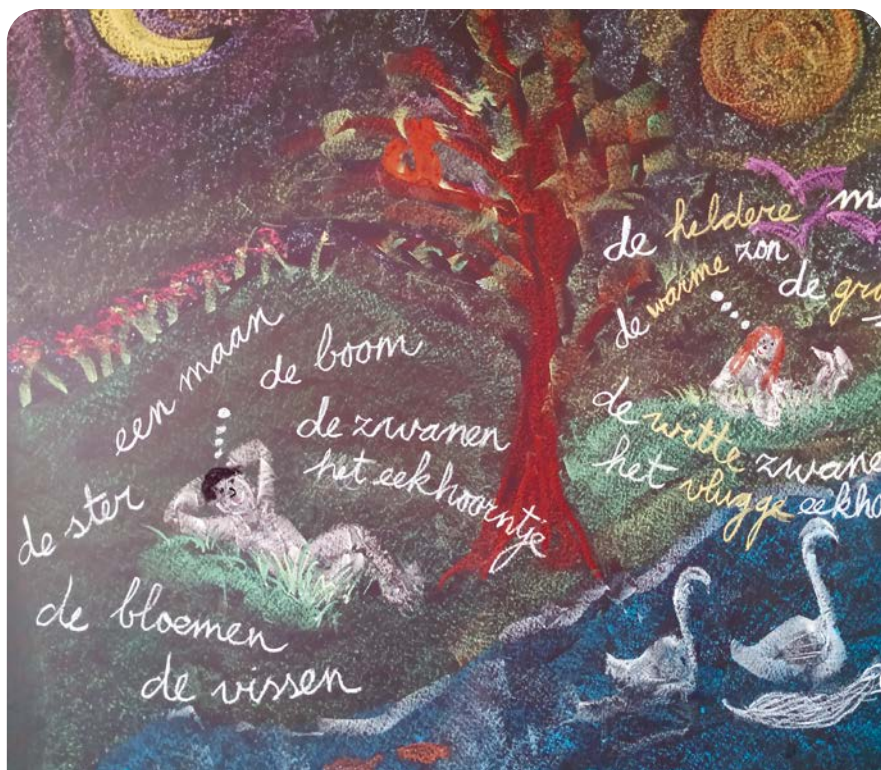 een maan
de boom
de zwanen
het eekhoorntje
de ster
de bloemen
de vissen
de heldere
zon
de warme
de
de witte zwane
het vlugge eekho